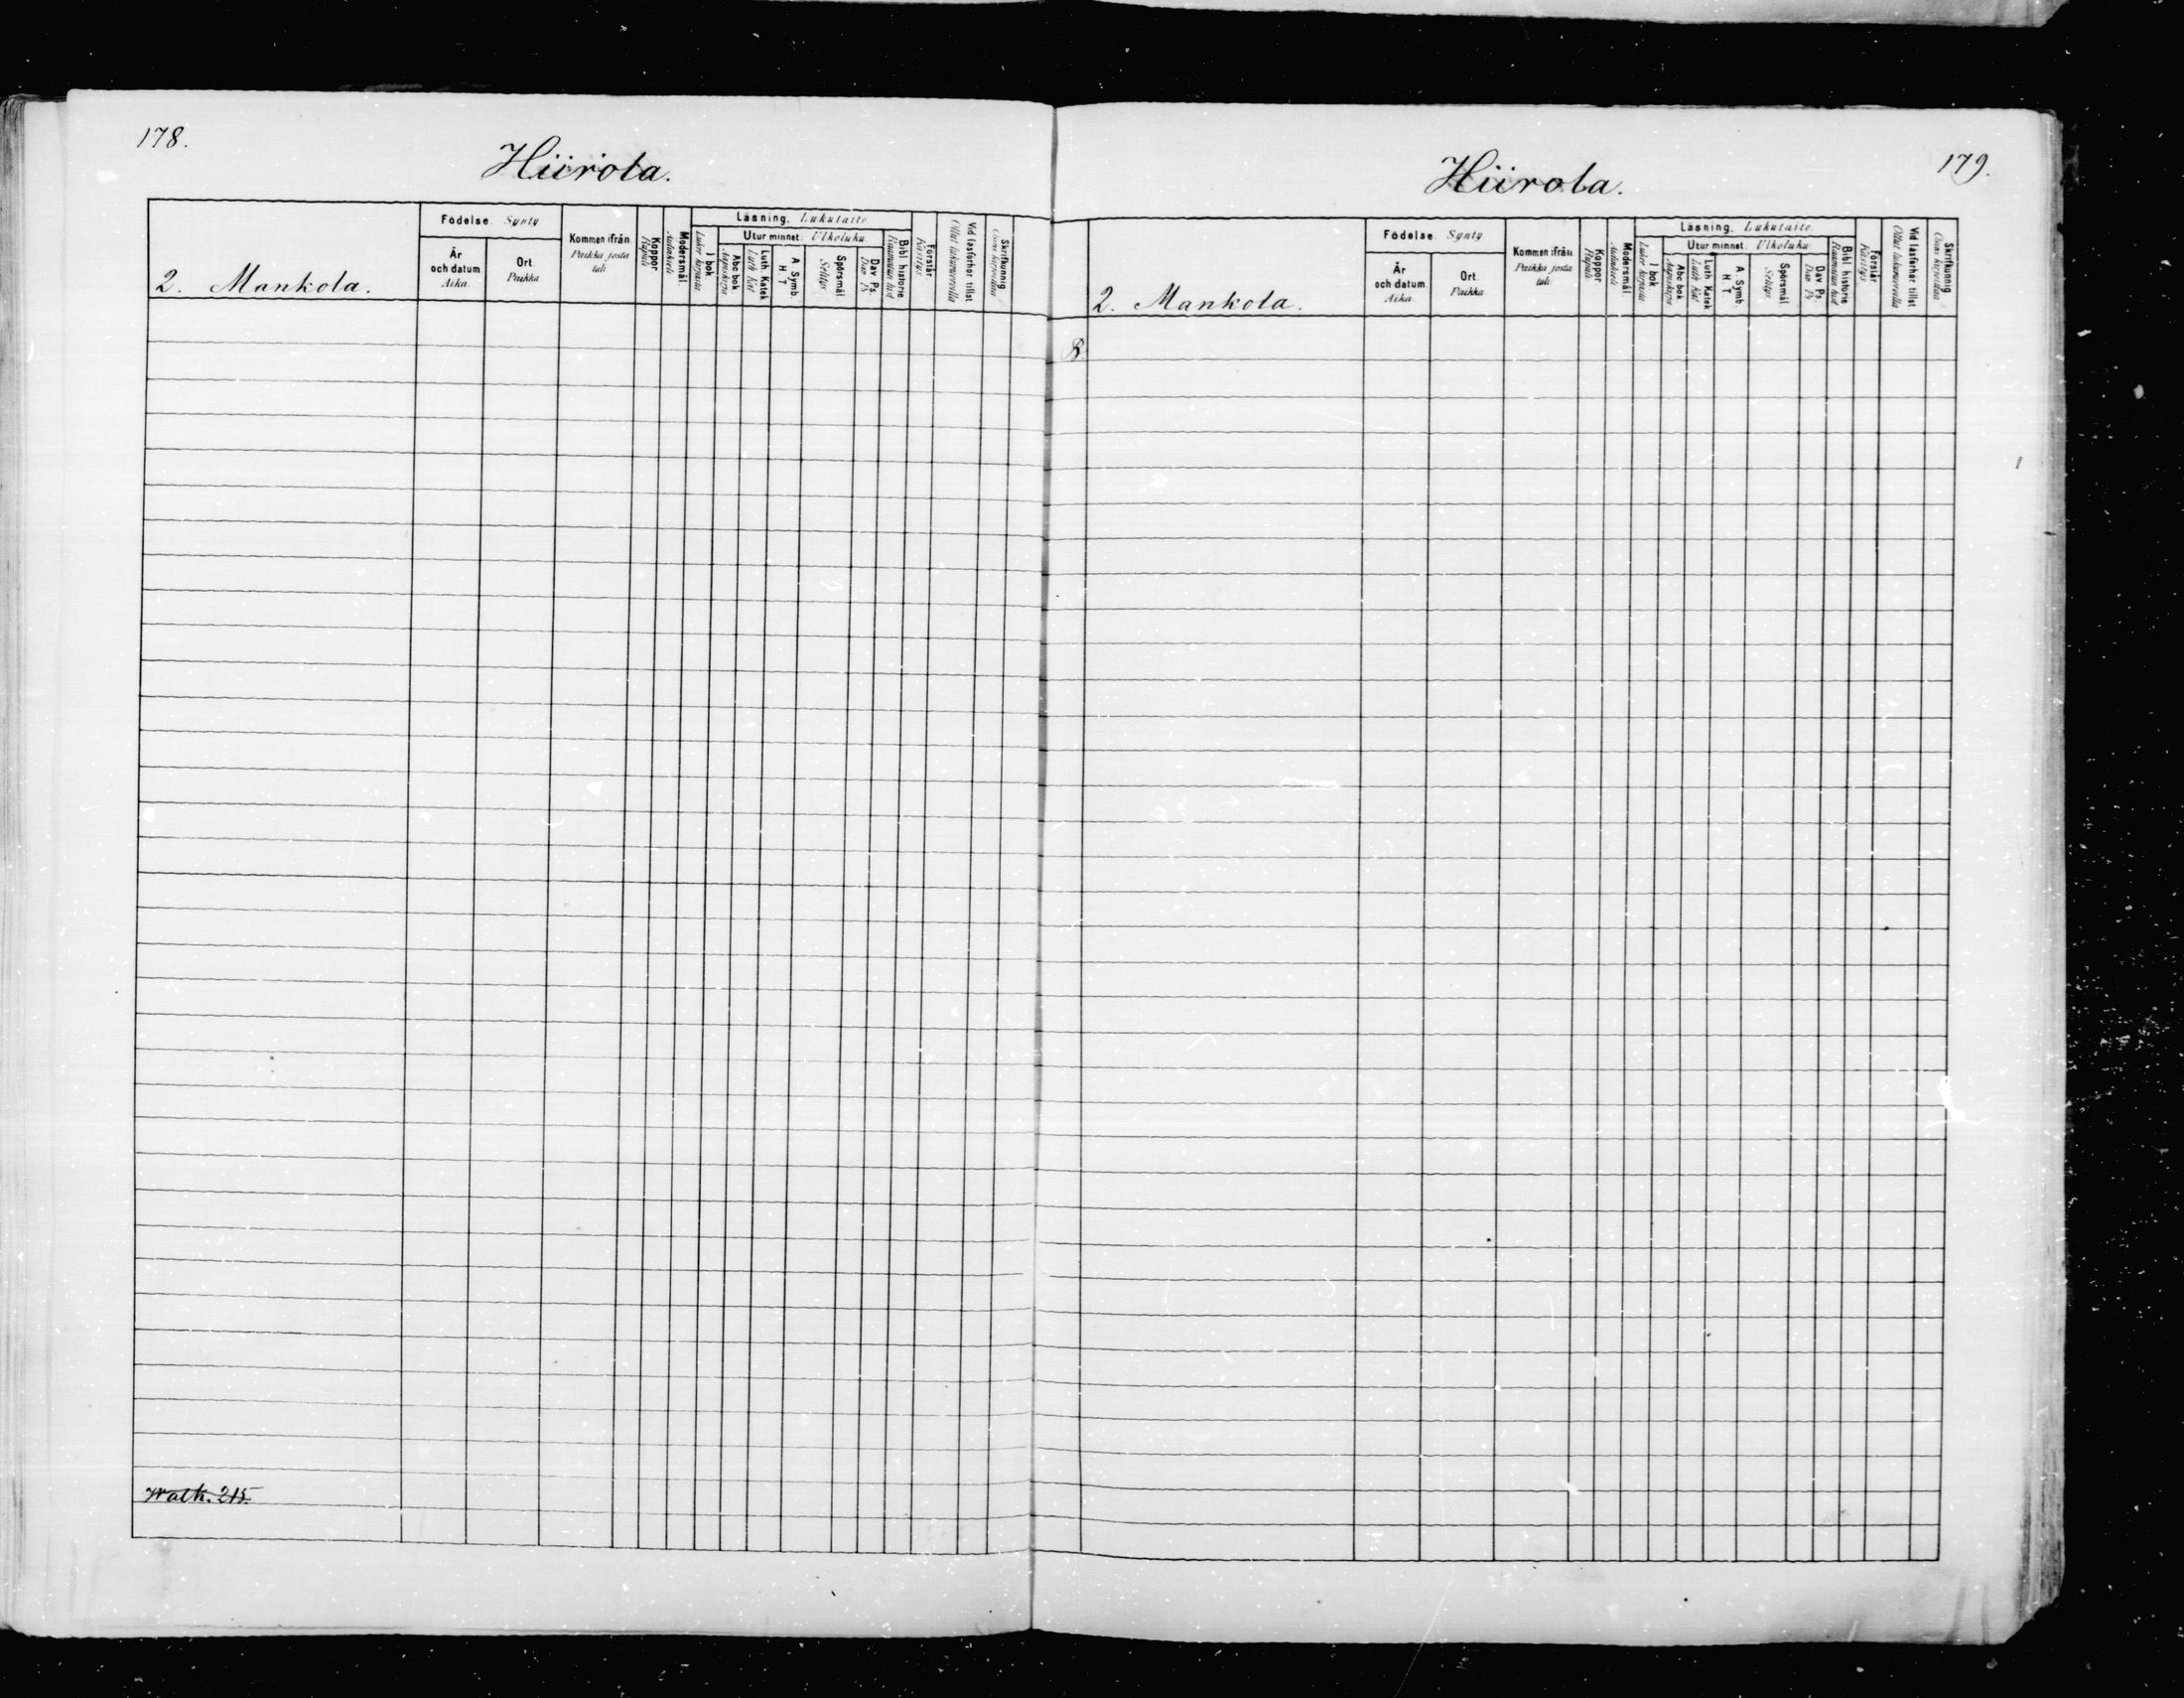 178.
Hiirola.
2. Mankola.
Födelse. Synty
År och datum Aika
Ort Paikka
Kommen ifrån Paikka josta tuli
Koppor Rupuli
Modersmål. Äidinkieli
Läsning. Lukutaito
I bok Luku kirjasta
Utur minnet. Ulkoluku
Abc bok Aapiskirja
Luth Katek Luth Kat
A. Symb. H. T
Spörsmål Selitys
Dav. Ps. Dav Ps
Bibl historie Raamatun hist
Förstår Käsitys
Vid läsförhör tillst Ollut lukuvuorolla
Skrifkunnig Osaa kirjoittaa
Walk. 215.
179.
Hiirola.
2. Mankola.
Födelse. Synty
År och datum Aika
Ort. Paikka
Kommen ifrån Paikka josta tuli
Koppor Rupuli
Modersmål. Äidinkieli
Läsning. Lukutaito
I bok Luku kirjasta
Utur minnet. Ulkoluku
Abc bok Aapiskirja
Luth Katek Luth Kat
A. Symb. H. T.
Spörsmål Selitys
Dav. Ps. Dav Ps
Bibl historie Raamatun hist
Förstår Käsitys
Vid läsförhör tillst Ollut lukuvuorolla
Skrifkunnig Osaa kirjoittaa